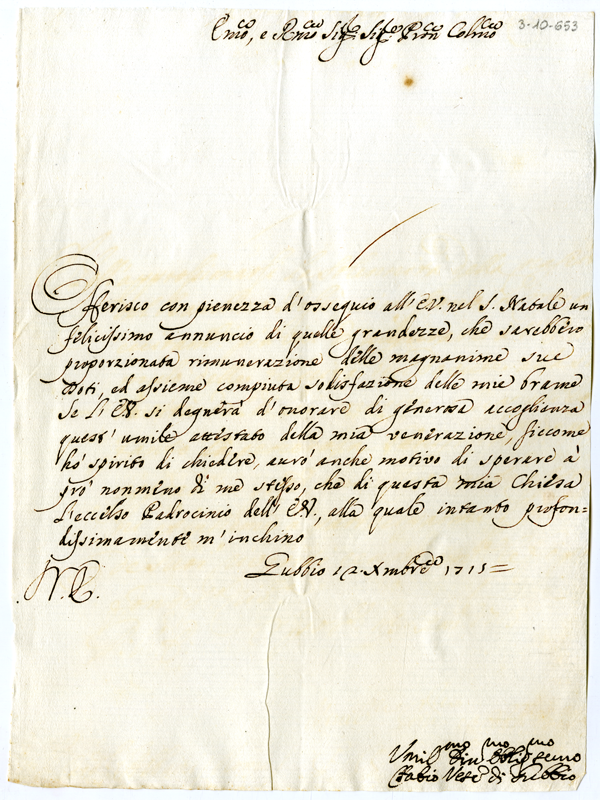 Em̃o, e Rm̃o Sig.r Sig.r Pron Colmo
3-10-653
Offerisco con pienezza d'ossequio all'EV. nel S. Natale un
felicissimo annuncio di quelle grandezze, che sarebbero
proporzionata rimunerazione delle magnanime sue
Doti, ed assieme compiuta sodisfazione delle mie brame
Se l'EV. si degnerà d'onorare di generosa accoglienza
quest' umile attestato della mia venerazione, siccome
hò spirito di chiedere, aurò anche motivo di sperare à
prò nonmeno di me stesso, che di questa mia Chiesa
l'eccelso Padrocinio dell'EV., alla quale intanto profon=
dissimamente m'inchino
Gubbio 12. Xmbre 1715=
Umilmo Divmo Obligmo Servo
Fabio Vesc.o di Gubbio